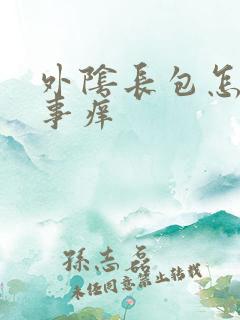 外陰長包怎
事痒
孫志磊
未经同意禁止转载